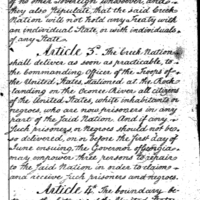 of no other Sovereign whosoever. And
they also stipulate, that the said Creek
Nation will not hold any Treaty with
an individual State, or with individuals
of any State.
Article 3d. The Creek Nation
shall deliver as soon as practicable, to
the commanding Officer of the Troops of
the United States, stationed at the Rock
landing on the Oconee River, all citizens
of the United States, white inhabitants or
negroes, who are now prisoners in any
part of the said Nation. And if any
such prisoners or negroes should not be
so delivered, on or before the first day of
June ensuing, the Governor of Georgia
may empower three persons to repair
to the said Nation in order to claim
and receive such prisoners and negroes.
Article 4th. The boundary be